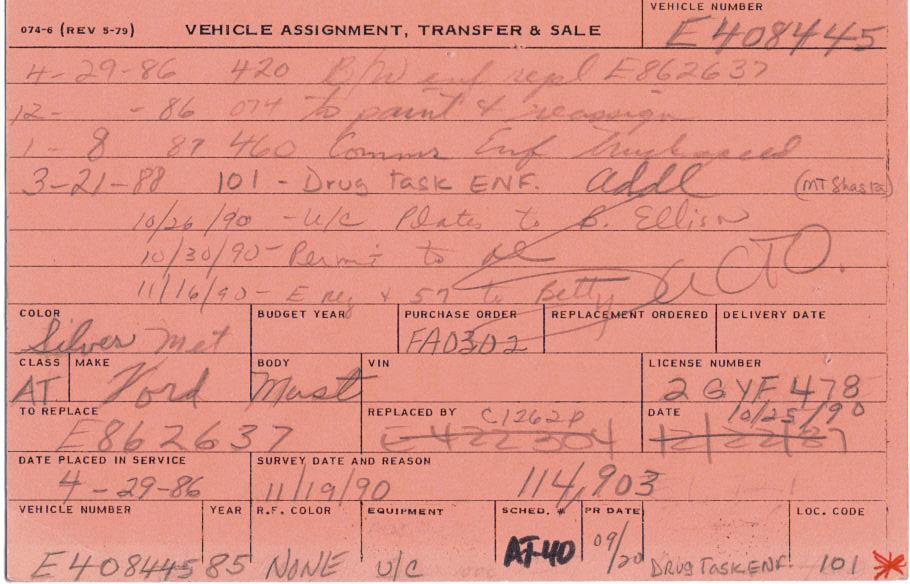 VEHICLE NUMBER
074-6 (REV 5-79) VEHICLE ASSIGNMENT, TRANSFER & SALE E408445
4-29-86 420 B/W enf repl E862637
12- -86 074 to paint & reassign
1-8 87 460 Comm Enf
3-21-88 101 - Drug Task ENF. addl (MT Shasta)
10/26/90 - U/C Plates to B. Ellison
10/30/90 - Permit to
11/16/90 - E reg & 57 to Betty CTO.
COLOR BUDGET YEAR PURCHASE ORDER REPLACEMENT ORDERED DELIVERY DATE
Silver Met FA0302
CLASS MAKE BODY VIN LICENSE NUMBER
AT Ford Must 2GYF478
TO REPLACE REPLACED BY C1262P DATE 10/25/90
E862637 E422304 12/22/87
DATE PLACED IN SERVICE SURVEY DATE AND REASON
4-29-86 11/19/90 114,903
VEHICLE NUMBER YEAR R.F. COLOR EQUIPMENT SCHED. # PR DATE LOC. CODE
E408445 85 NONE U/C AT-40 09/20 DRUG TASK ENF. 101